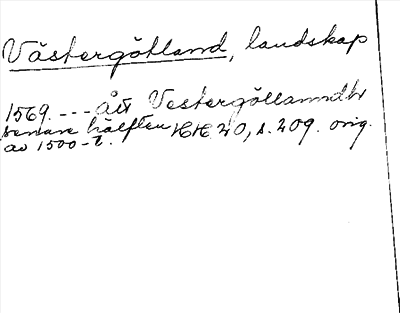 Västergötland, landskap
1569. --- Ått Vestergöttlanndtt
senare hälften HH 20, s. 209. orig.
av 1500-t.